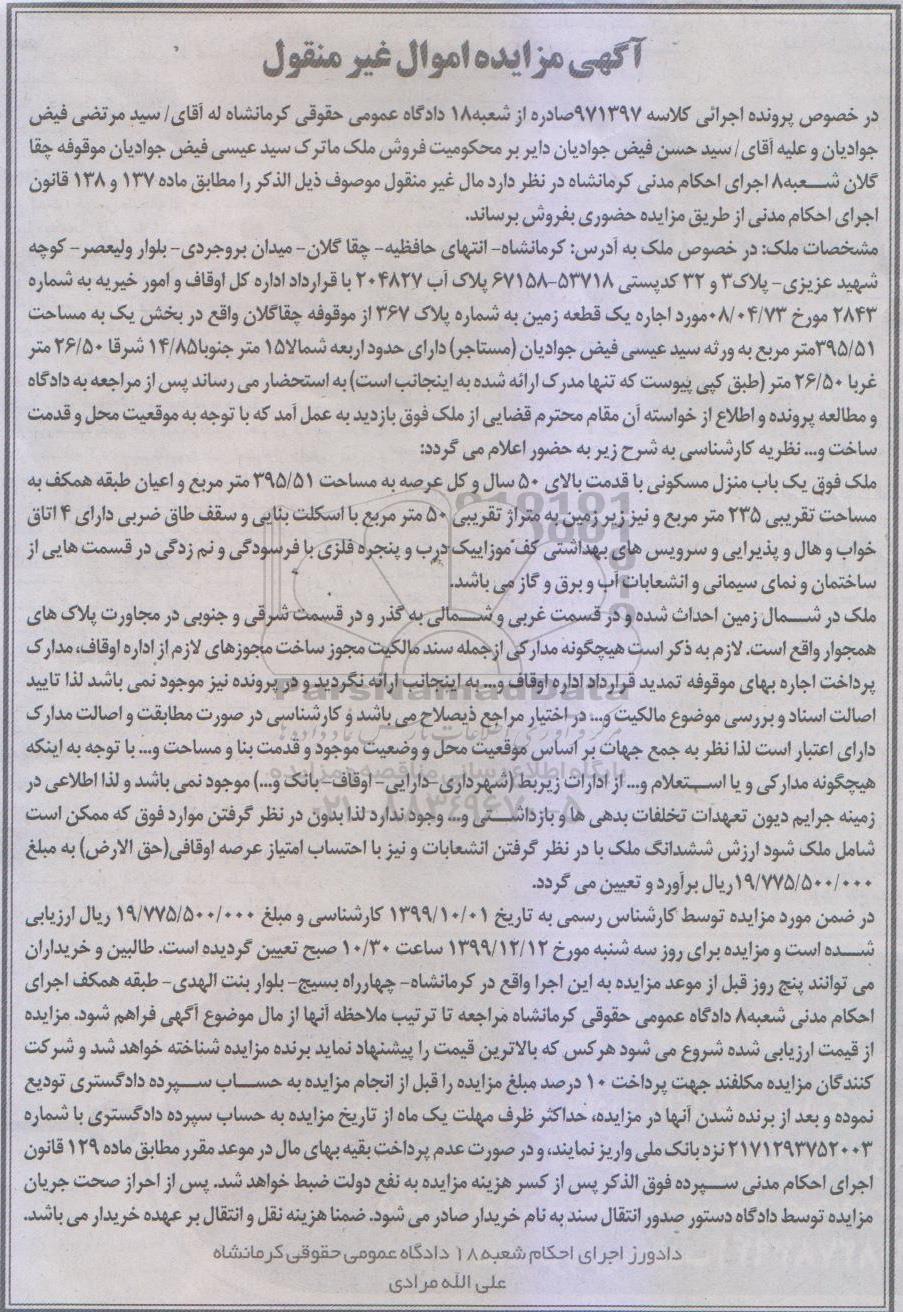 آگهی مزایده اموال غیر منقول
در خصوص پرونده اجرائی کلاسه ۹۷۱۳۹۷صادره از شعبه۱۸ دادگاه عمومی حقوقی کرمانشاه له آقای/ سید مرتضی فیض
جوادیان و علیه آقای/ سید حسن فیض جوادیان دایر بر محکومیت فروش ملک ماترک سید عیسی فیض جوادیان موقوفه چقا
گلان شعبه۸ اجرای احکام مدنی کرمانشاه در نظر دارد مال غیر منقول موصوف ذیل الذکر را مطابق ماده ۱۳۷ و ۱۳۸ قانون
اجرای احکام مدنی از طریق مزایده حضوری بفروش برساند.
مشخصات ملک: در خصوص ملک به آدرس: کرمانشاه- انتهای حافظیه- چقا گلان- میدان بروجردی- بلوار ولیعصر- کوچه
شهید عزیزی- پلاک۳ و ۳۲ کدپستی ۵۳۷۱۸-۶۷۱۵۸ پلاک آب ۲۰۴۸۲۷ با قرارداد اداره کل اوقاف و امور خیریه به شماره
۲۸۴۳ مورخ ۰۸/۰۴/۷۳مورد اجاره یک قطعه زمین به شماره پلاک ۳۶۷ از موقوفه چقاگلان واقع در بخش یک به مساحت
۳۹۵/۵۱متر مربع به ورثه سید عیسی فیض جوادیان (مستاجر) دارای حدود اربعه شمالا۱۵ متر جنوبا۱۴/۸۵ شرقا ۲۶/۵۰ متر
غربا ۲۶/۵۰ متر (طبق کپی پیوست که تنها مدرک ارائه شده به اینجانب است) به استحضار می رساند پس از مراجعه به دادگاه
و مطالعه پرونده و اطلاع از خواسته آن مقام محترم قضایی از ملک فوق بازدید به عمل آمد که با توجه به موقعیت محل و قدمت
ساخت و... نظریه کارشناسی به شرح زیر به حضور اعلام می گردد:
ملک فوق یک باب منزل مسکونی با قدمت بالای ۵۰ سال و کل عرصه به مساحت ۳۹۵/۵۱ متر مربع و اعیان طبقه همکف به
مساحت تقریبی ۲۳۵ متر مربع و نیز زیر زمین به متراژ تقریبی ۵۰ متر مربع با اسکلت بنایی و سقف طاق ضربی دارای ۴ اتاق
خواب و هال و پذیرایی و سرویس های بهداشتی کف موزاییک درب و پنجره فلزی با فرسودگی و نم زدگی در قسمت هایی از
ساختمان و نمای سیمانی و انشعابات آب و برق و گاز می باشد.
ملک در شمال زمین احداث شده و در قسمت غربی و شمالی به گذر و در قسمت شرقی و جنوبی در مجاورت پلاک های
همجوار واقع است. لازم به ذکر است هیچگونه مدارکی ازجمله سند مالکیت مجوز ساخت مجوزهای لازم از اداره اوقاف، مدارک
پرداخت اجاره بهای موقوفه تمدید قرارداد اداره اوقاف و... به اینجانب ارائه نگردید و در پرونده نیز موجود نمی باشد لذا تایید
اصالت اسناد و بررسی موضوع مالکیت و... در اختیار مراجع ذیصلاح می باشد و کارشناسی در صورت مطابقت و اصالت مدارک
دارای اعتبار است لذا نظر به جمع جهات بر اساس موقعیت محل و وضعیت موجود و قدمت بنا و مساحت و... با توجه به اینکه
هیچگونه مدارکی و یا استعلام و... از ادارات زیربط (شهرداری-دارایی- اوقاف- بانک و...) موجود نمی باشد و لذا اطلاعی در
زمینه جرایم دیون تعهدات تخلفات بدهی ها و بازداشتی و... وجود ندارد لذا بدون در نظر گرفتن موارد فوق که ممکن است
شامل ملک شود ارزش ششدانگ ملک با در نظر گرفتن انشعابات و نیز با احتساب امتیاز عرصه اوقافی(حق الارض) به مبلغ
۱۹/۷۷۵/۵۰۰/۰۰۰ریال برآورد و تعیین می گردد.
در ضمن مورد مزایده توسط کارشناس رسمی به تاریخ ۱۳۹۹/۱۰/۰۱ کارشناسی و مبلغ ۱۹/۷۷۵/۵۰۰/۰۰۰ ریال ارزیابی
شده است و مزایده برای روز سه شنبه مورخ ۱۳۹۹/۱۲/۱۲ ساعت ۱۰/۳۰ صبح تعیین گردیده است. طالبین و خریداران
می توانند پنج روز قبل از موعد مزایده به این اجرا واقع در کرمانشاه- چهارراه بسیج- بلوار بنت الهدی- طبقه همکف اجرای
احکام مدنی شعبه۸ دادگاه عمومی حقوقی کرمانشاه مراجعه تا ترتیب ملاحظه آنها از مال موضوع آگهی فراهم شود. مزایده
از قیمت ارزیابی شده شروع می شود هرکس که بالاترین قیمت را پیشنهاد نماید برنده مزایده شناخته خواهد شد و شرکت
کنندگان مزایده مکلفند جهت پرداخت ۱۰ درصد مبلغ مزایده را قبل از انجام مزایده به حساب سپرده دادگستری تودیع
نموده و بعد از برنده شدن آنها در مزایده، حداکثر ظرف مهلت یک ماه از تاریخ مزایده به حساب سپرده دادگستری با شماره
۲۱۷۱۲۹۳۷۵۲۰۰۳ نزد بانک ملی واریز نمایند، و در صورت عدم پرداخت بقیه بهای مال در موعد مقرر مطابق ماده ۱۲۹ قانون
اجرای احکام مدنی سپرده فوق الذکر پس از کسر هزینه مزایده به نفع دولت ضبط خواهد شد. پس از احراز صحت جریان
مزایده توسط دادگاه دستور صدور انتقال سند به نام خریدار صادر می شود. ضمنا هزینه نقل و انتقال بر عهده خریدار می باشد.
دادورز اجرای احکام شعبه۱۸ دادگاه عمومی حقوقی کرمانشاه
علی الله مرادی
ParsNamadData
۰۲۱-۸۸۳۴۹۶۷۰-۵